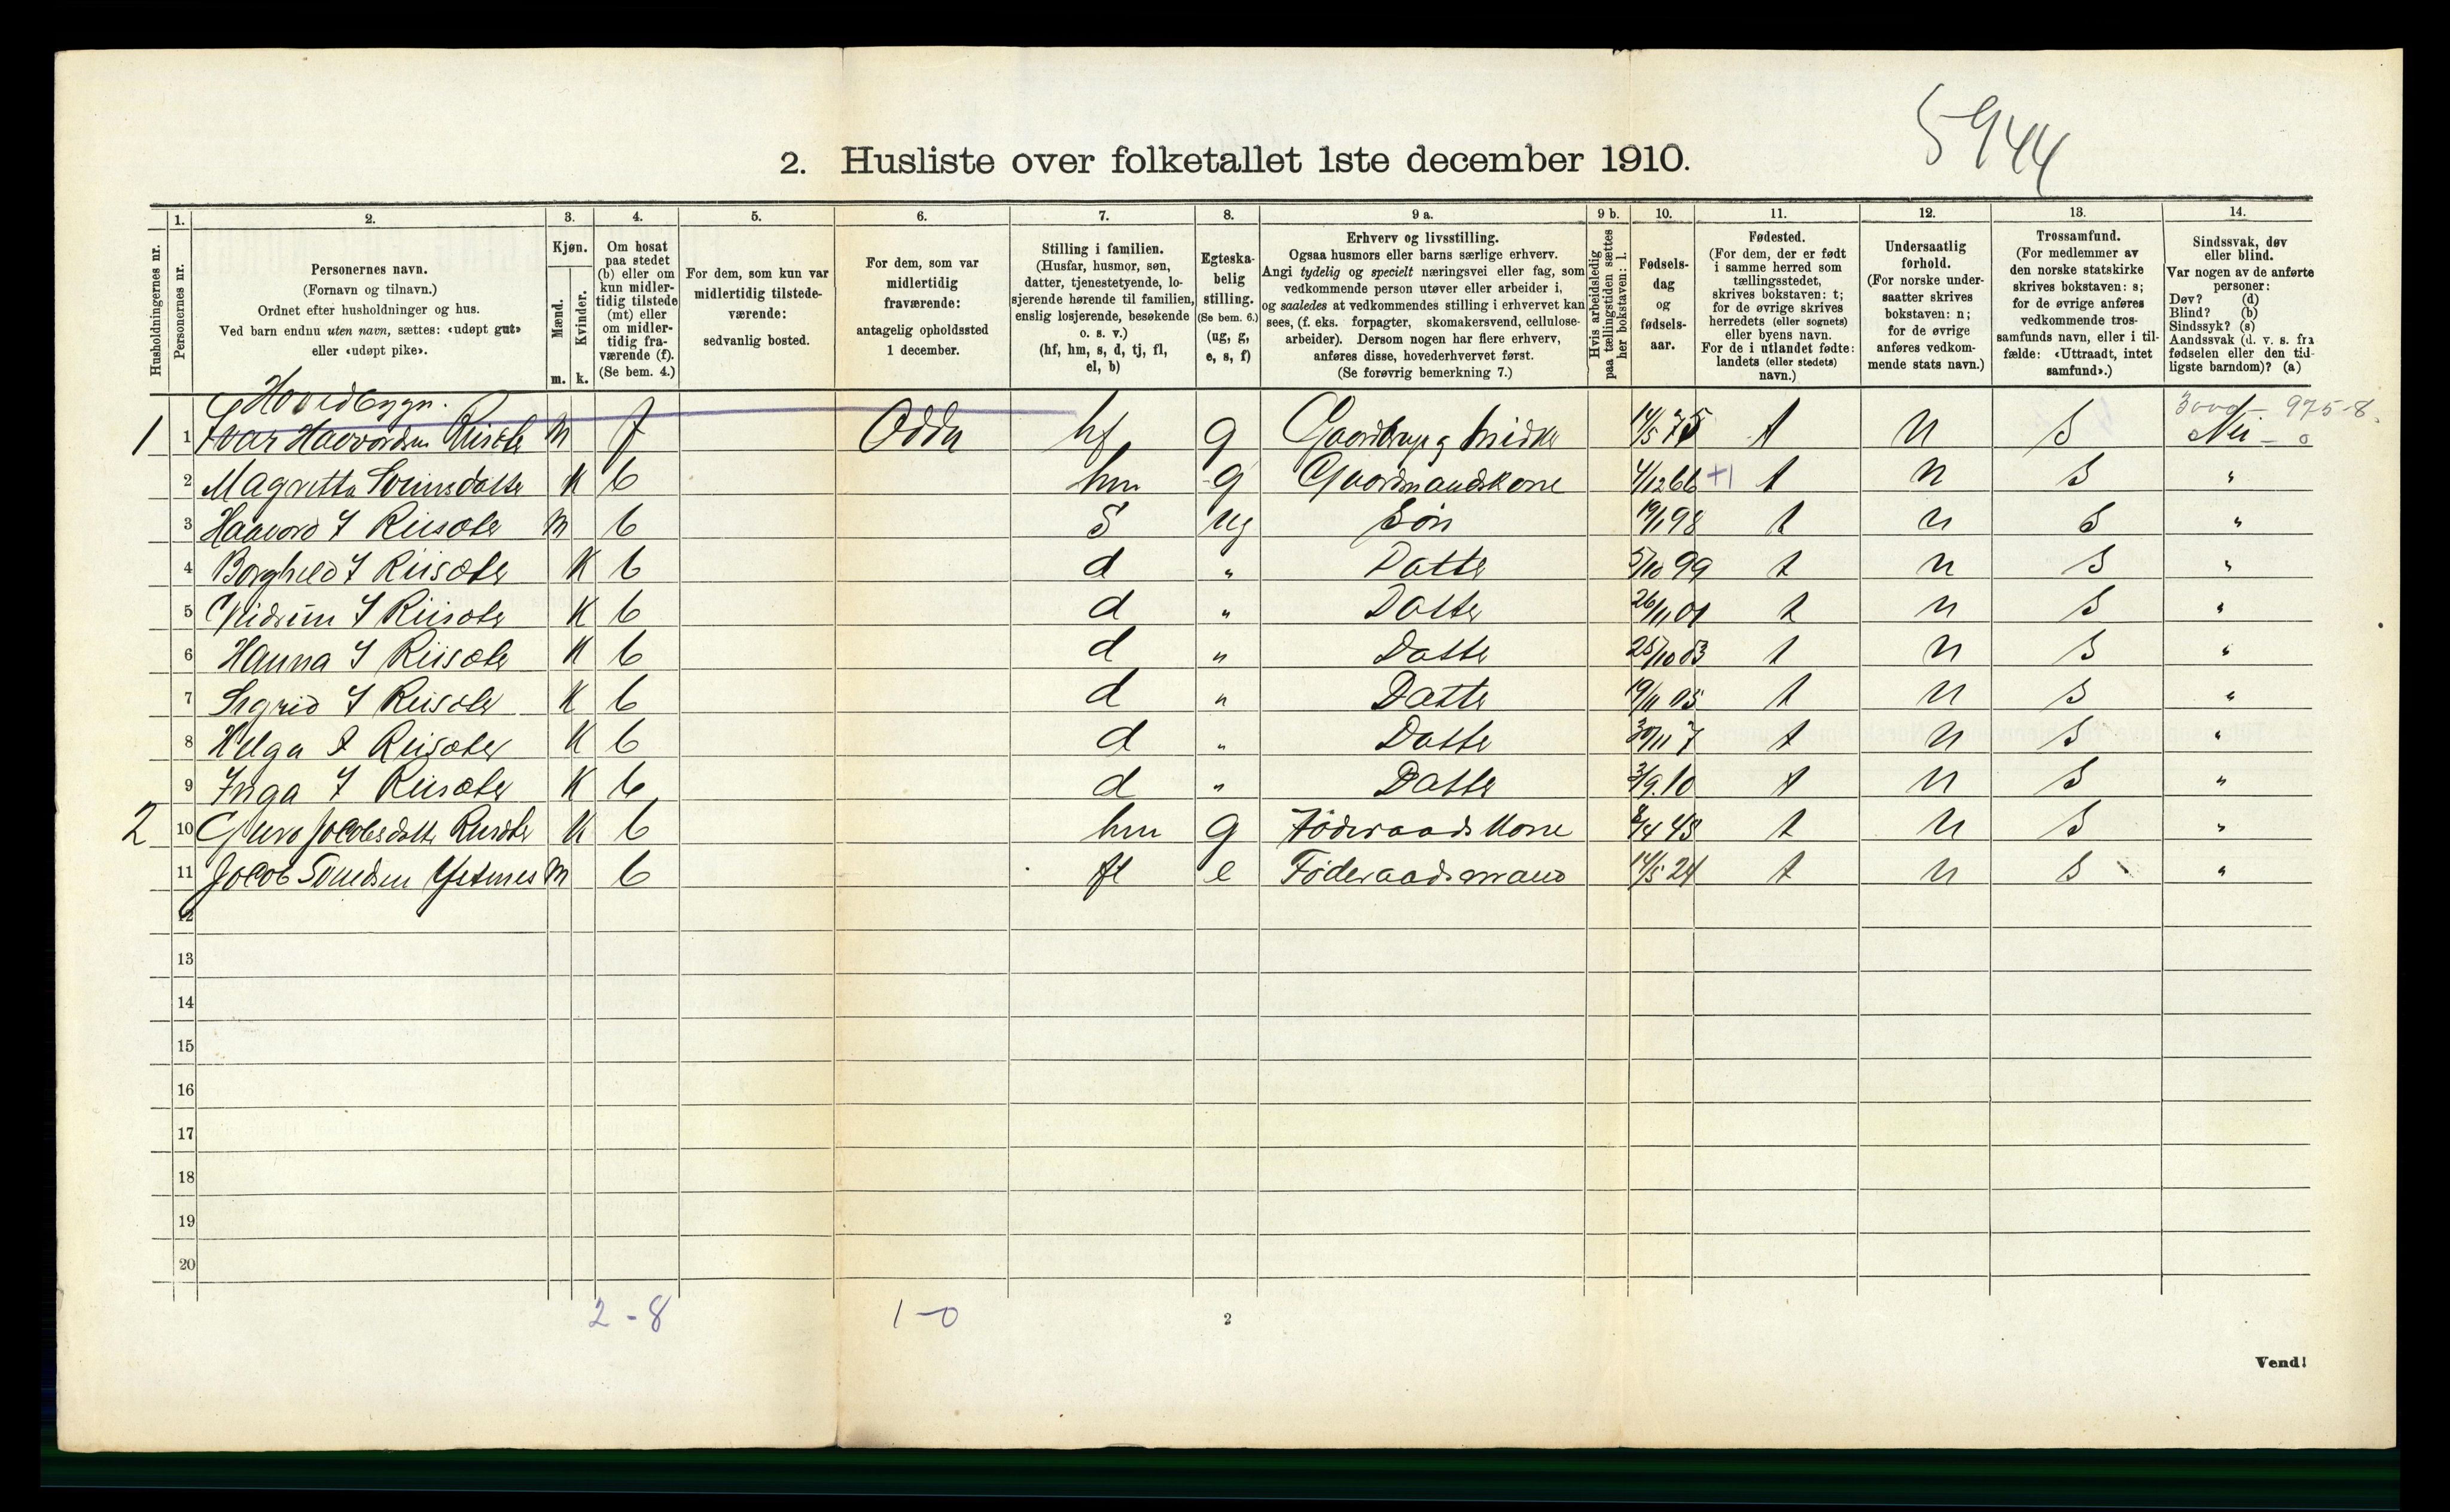 5944
2. Husliste over folketallet 1ste december 1910.
Husholdningernes nr.
1.
Personernes nr.
2.
Personernes navn.
(Fornavn og tilnavn.)
Ordnet efter husholdninger og hus.
Ved barn endnu uten navn, sættes: «udøpt gut»
eller «udøpt pike».
3.
Kjøn.
Mænd.
Kvinder.
m. k.
4.
Om bosat
paa stedet
(b) eller om
kun midler-
tidig tilstede
(mt) eller
om midler-
tidig fra-
værende (f).
(Se bem. 4.)
5.
For dem, som kun var
midlertidig tilstede-
værende:
sedvanlig bosted.
6.
For dem, som var
midlertidig
fraværende:
antagelig opholdssted
1 december.
7.
Stilling i familien.
(Husfar, husmor, søn,
datter, tjenestetyende, lo-
sjerende hørende til familien,
enslig losjerende, besøkende
o. s. v.)
(hf, hm, s, d, tj, fl,
el, b)
8.
Egteska-
belig
stilling.
(Se bem. 6.)
(ug, g,
e, s, f)
9 a.
Erhverv og livsstilling.
Ogsaa husmors eller barns særlige erhverv.
Angi tydelig og specielt næringsvei eller fag, som
vedkommende person utøver eller arbeider i,
og saaledes at vedkommendes stilling i erhvervet kan
sees, (f. eks. forpagter, skomakersvend, cellulose-
arbeider). Dersom nogen har flere erhverv,
anføres disse, hovederhvervet først.
(Se forøvrig bemerkning 7.)
9 b.
Hvis arbeidsledig
paa tællingstiden sættes
her bokstaven: l.
10.
Fødsels-
dag
og
fødsels-
aar.
11.
Fødested.
(For dem, der er født
i samme herred som
tællingsstedet,
skrives bokstaven: t;
for de øvrige skrives
herredets (eller sognets)
eller byens navn.
For de i utlandet fødte:
landets (eller stedets)
navn.)
12.
Undersaatlig
forhold.
(For norske under-
saatter skrives
bokstaven: n;
for de øvrige
anføres vedkom-
mende stats navn.)
13.
Trossamfund.
(For medlemmer av
den norske statskirke
skrives bokstaven: s;
for de øvrige anføres
vedkommende tros-
samfunds navn, eller i til-
fælde: «Uttraadt, intet
samfund».)
14.
Sindssvak, døv
eller blind.
Var nogen av de anførte
personer:
Døv? (d)
Blind? (b)
Sindssyk? (s)
Aandssvak (d. v. s. fra
fødselen eller den tid-
ligste barndom)? (a)
Hovedbygn.
975-8
1 1 Ivar Haavordsen Riisæter m f Odda hf g 14/5 75 t n S Nei - 0
2 Magretta Sveinsdatter K b hm g Gaardmandskone 4/12 66 +1 t n S "
3 Haavord I Riisæter m b S ug Søn 19/1 98 t n S "
4 Borghild I Riisæter K b d " Datter 5/10 99 t n S "
5 Gudrun I Riisæter K b d " Datter 26/11 01 t n S "
6 Hanna I Riisæter K b d " Datter 25/10 03 t n S "
7 Sigrid I Riisæter K b d " Datter 19/11 05 t n S "
8 Helga I Riisæter K b d " Datter 30/11 7 t n S "
9 Inga I Riisæter K b d " Datter 3/9.10 t n S "
2 10 Guro Jacobsdatter Riisæter K b hm g Føderaads Kone 8/4 43 t n S "
11 Jacob m b fl e Føderaadsmand 14/5 24 t n S "
12
13
14
15
16
17
18
19
20
2-8 1-0
2
Vend!